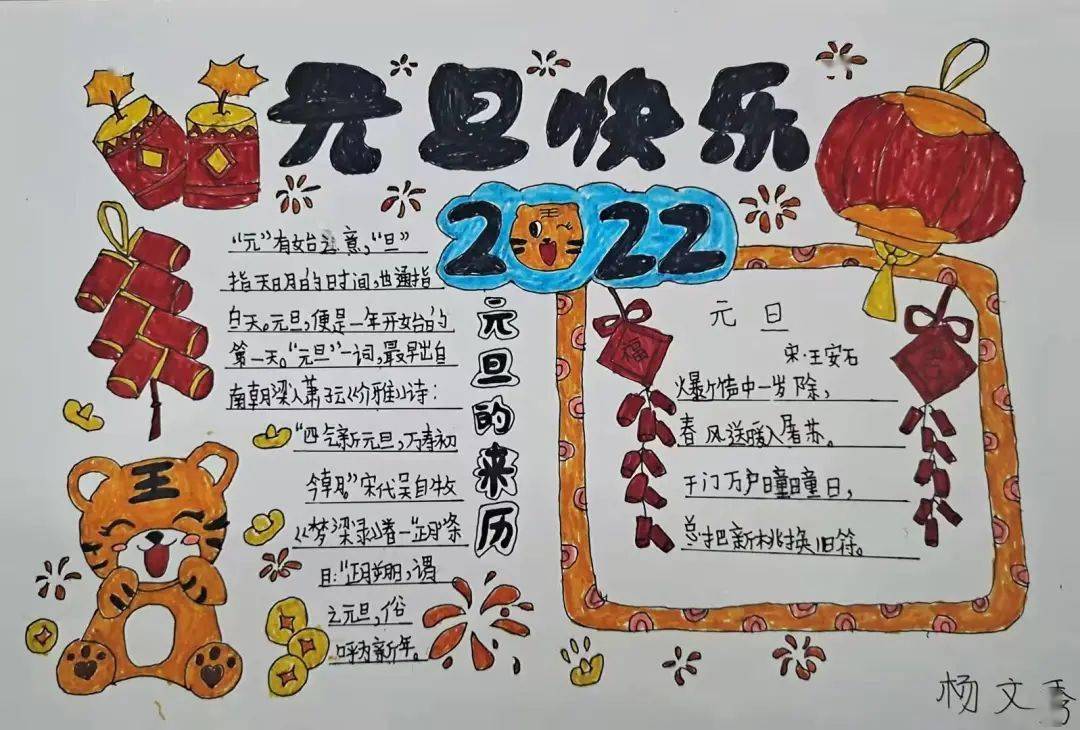 元旦快乐
2022
"元"有始之意,"旦"
指天明的时间,也通指
白天。元旦,便是一年开始的
第一天。"元旦"一词,最早出自
南朝梁人萧子云《介雅》诗:
"四气新元旦,万寿初
今朝。"宋代吴自牧
《梦梁录》卷一"正月"条
目:"正月朔,谓
之元旦,俗
呼为新年。
元旦的来历
元旦
宋·王安石
爆竹声中一岁除,
春风送暖入屠苏。
千门万户瞳瞳日,
总把新桃换旧符。
福
王
杨文